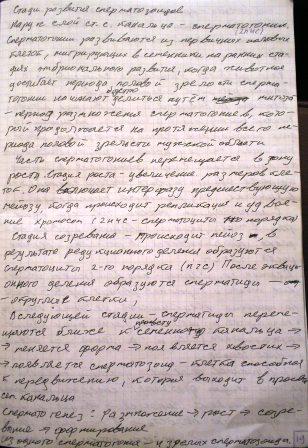 Стадии развития сперматозоидов
Наруж слой ст. с. канальца – сперматогонии.
(2n2c)
Сперматогонии развиваются из первичных половых
клеток, мигрирующих в семенники на ранних ста-
диях эмбрионального развития, когда животное
достигает периода половой зрелости сперма
тогонии начинают быстро делиться путём митоза
– период размножения сперматогониев, кото-
рый продолжается на протяжении всего пе-
риода половой зрелости мужской
Часть сперматогониев перемещается в зону
роста. Стадия роста – увеличение размеров кле-
ток. Она включает интерфазу предшествующую
мейозу когда происходит репликация и удвое-
ние хромосом (2n4c – сперматоциты 1го порядка)
Стадия созревания – происходит мейоз, в
результате редукционного деления образуются
сперматоциты 2-го порядка (n2c) После эквацио-
онного деления образуются сперматиды –
округлые клетки,
В следующей стадии – сперматиды переме-
щаются ближе к просвету семенного канальца →
→ меняется форма → появляется хвостик →
→ появляется сперматозоид – клетка способная
к передвижению, которая выходит в просв
сем канальца
Сперматогенез: Размножение → рост → созре-
вание → формирование
Из одного сперматогония – 4 зрелых сперматозоида.